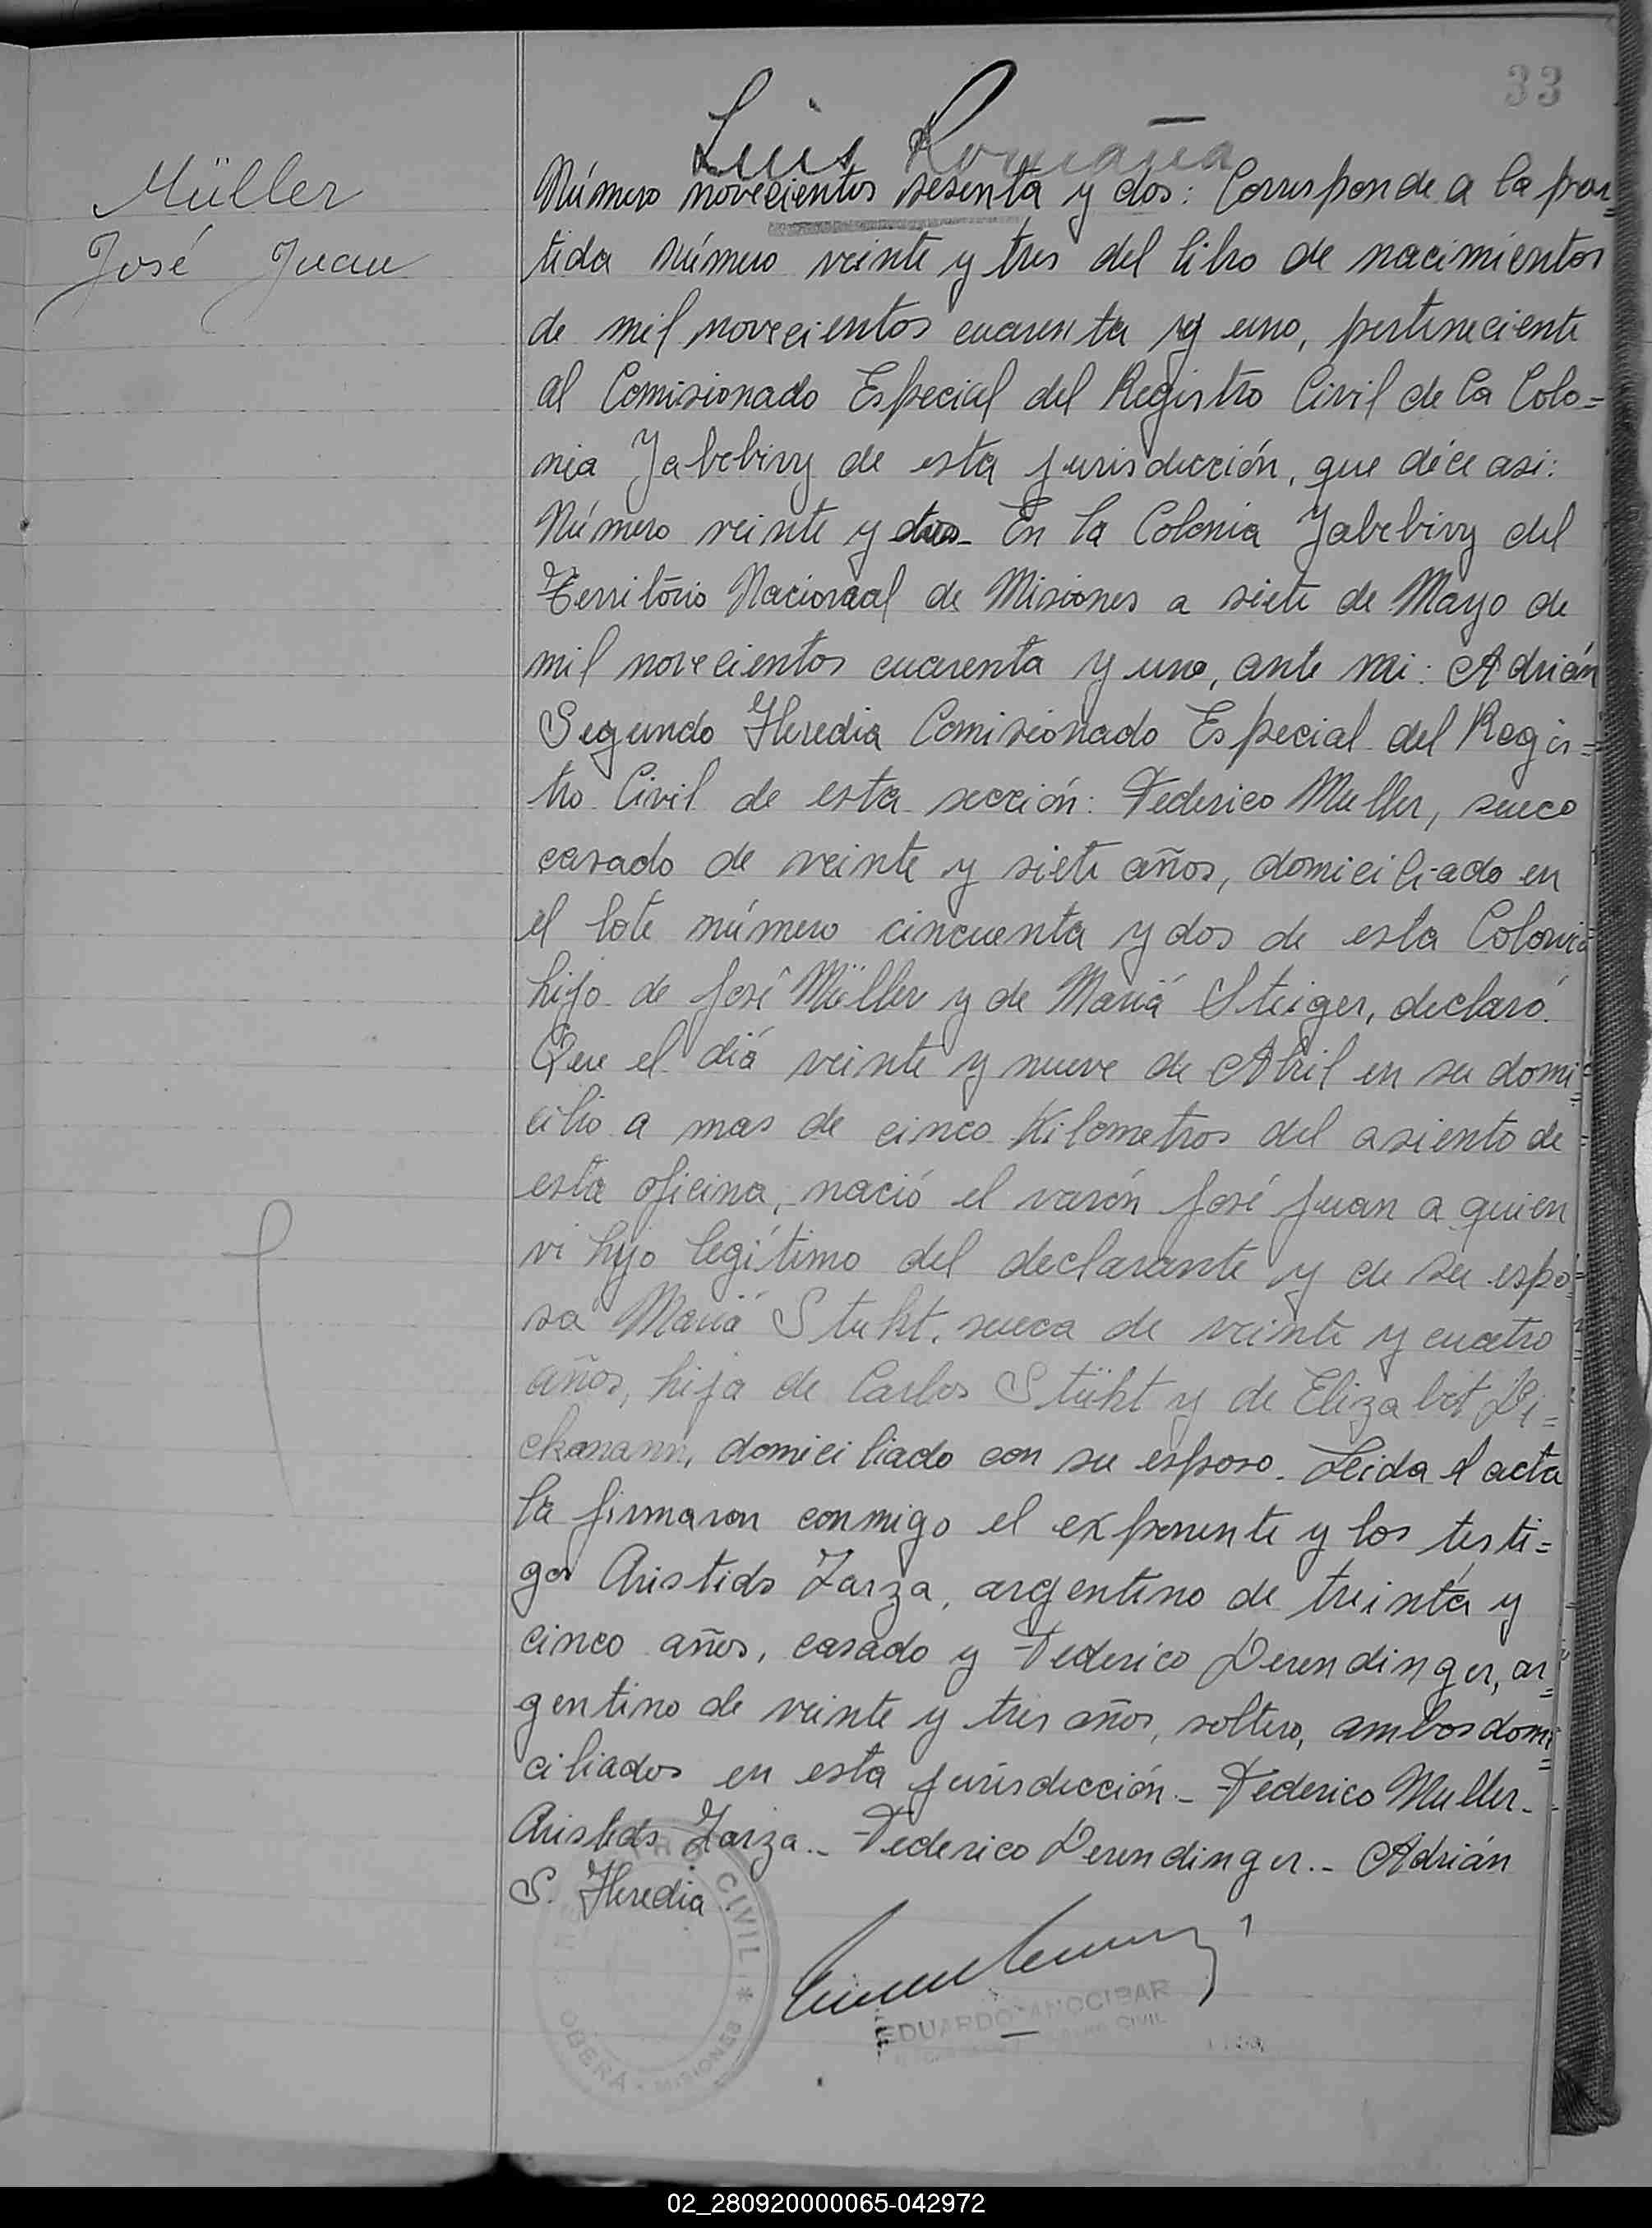 33
Luis Romaña
Müller
José Juan
Número novecientos sesenta y dos: Corresponde a la par=
tida número veinte y tres del libro de nacimientos
de mil novecientos cuarenta y uno, perteneciente
al Comisionado Especial del Registro Civil de la Colo=
nia Yabebiry de esta jurisdicción, que dice asi:
Número veinte y dos_ En la Colonia Yabebiry del
Território Nacionaal de Misiones a siete de Mayo de
mil novecientos cuarenta y uno, ante mi: Adrián
Segundo Heredia Comisionado Especial del Regis=
tro Civil de esta sección: Federico Muller, sueco
casado de veinte y siete años, domiciliado en
el lote número cincuenta y dos de esta Colonia
hijo de José Müller y de Mariá Steiger, declaró.
Que el diá veinte y nueve de Abril en su domi=
cilio a mas de cinco Kilometros del asiento de
esta oficina, nació el varón José Juan a quien
vi hijo legítimo del declarante y de su espo=
sa Mariá Stuht, sueca de veinte y cuatro
años, hija de Carlos Stüht y de Elizabet Di=
ckmann, domiciliado con su esposo. Leida el acta
la firmaron conmigo el exponente y los testi=
gos Aristids Zarza, argentino de treinta y
cinco años, casado y Federico Derendinger, ar=
gentino de veinte y tres años, soltero, ambos domi=
ciliados en esta jurisdicción._ Federico Muller._
Aristids Zarza._ Federico Derendinger._ Adrián
S. Heredia.
CIVIL * OBERA - MISIONES
EDUARDO ANOCIBAR
CIVIL
02_280920000065-042972